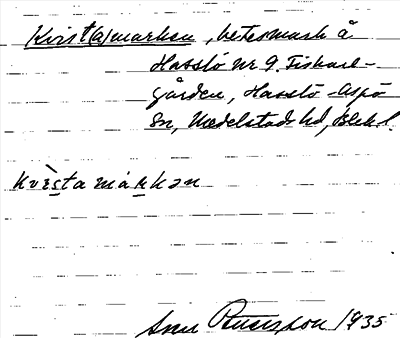 Kvist(a)marken, betesmark å
Hasslö nr 9. Fiskare-
gården, Hasslö-Aspö
sn, Medelstads hd, Blekl.
kvìsta márkən
Sven Petersson 1935